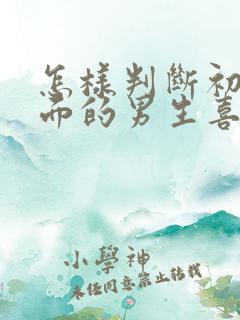 怎樣判斷初
而的男生喜
小學神
未经同意禁止转载